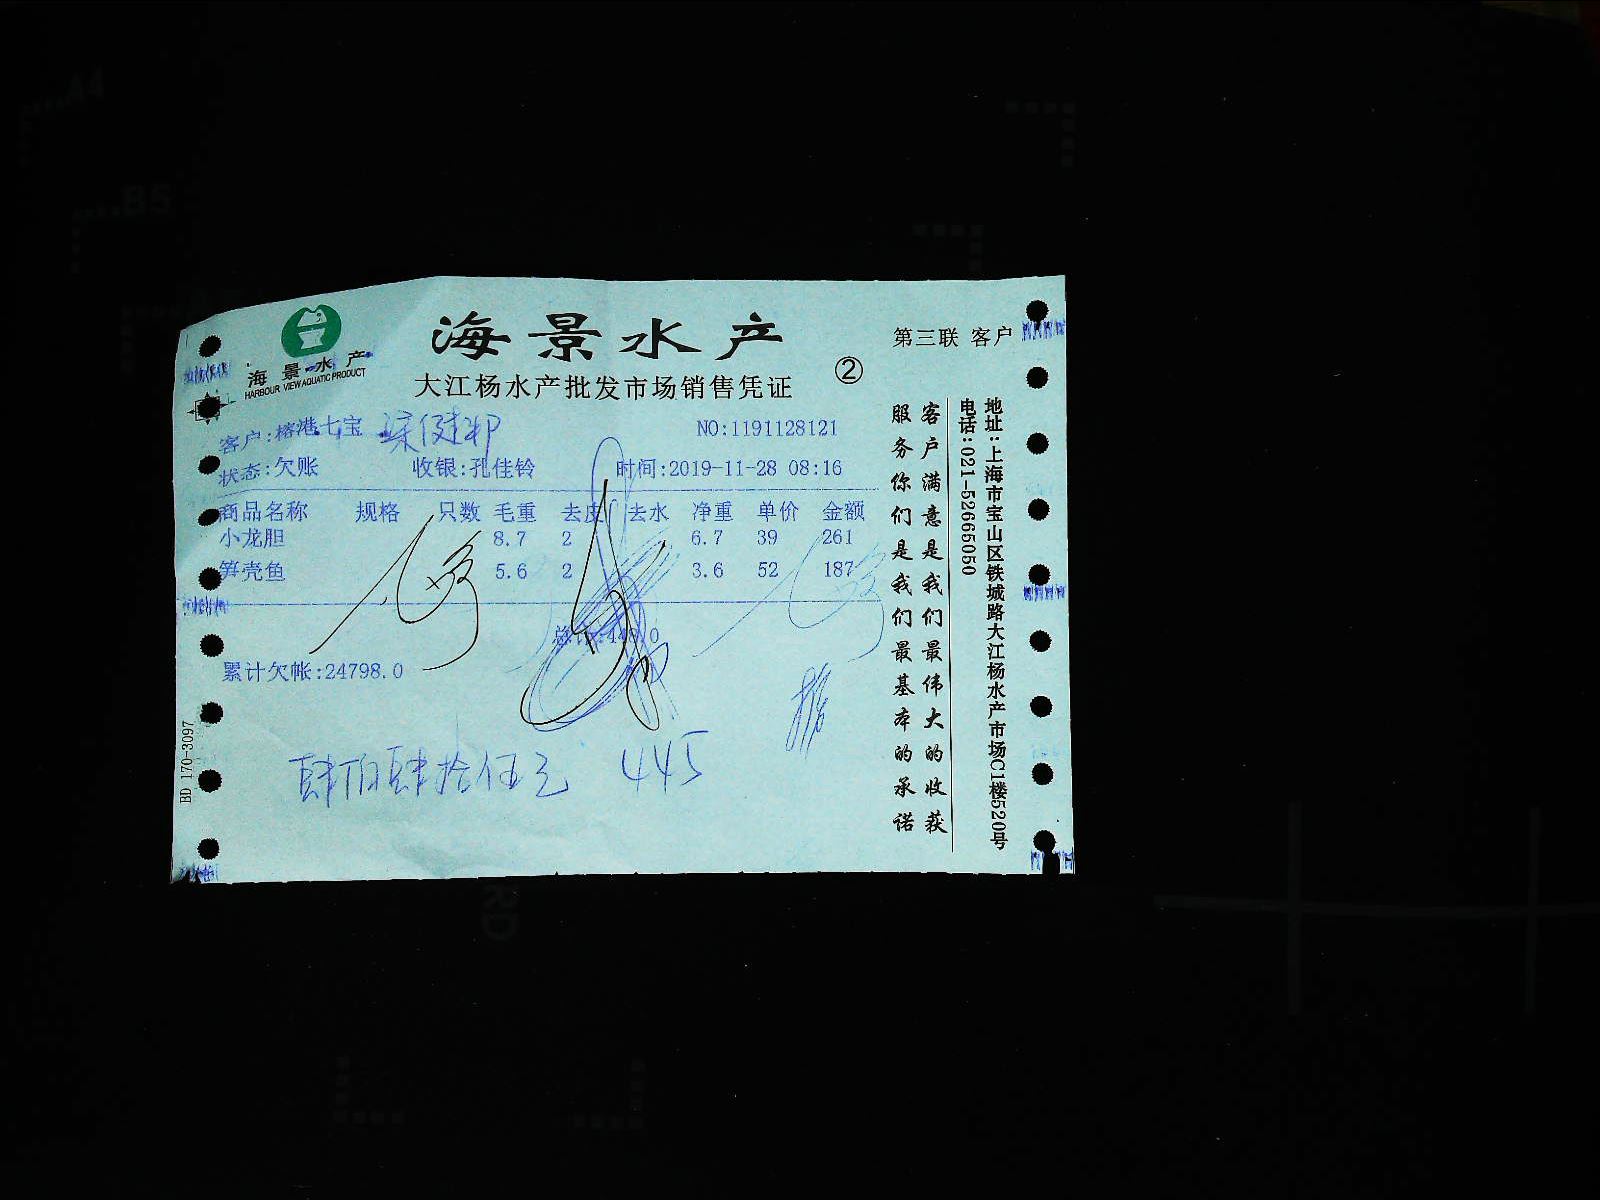 海景水产
HARBOUR VIEW AQUATIC PRODUCT
海景水产
大江杨水产批发市场销售凭证
②
第三联 客户
客户:榕港七宝
NO:1191128121
状态:欠账 收银:孔佳铃 时间:2019-11-28 08:16
商品名称 规格 只数 毛重 去皮 去水 净重 单价 金额
小龙胆 8.7 2 6.7 39 261
笋壳鱼 5.6 2 3.6 52 187
累计欠帐:24798.0
肆佰肆拾伍元 445
BD 170-3097
客户满意是我们最伟大的收获
服务你们是我们最基本的承诺
地址:上海市宝山区铁城路大江杨水产市场C1楼520号
电话:021-52665050